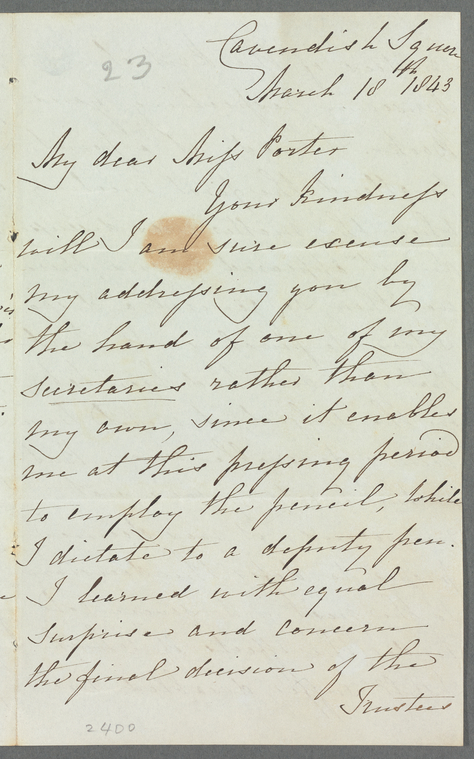 23
Cavendish Square
March 18th 1843
My dear Miss Porter
Your kindness
will I am sure excuse
my addressing you by
the hand of one of my
secretaries rather than
my own, since it enables
me at this pressing period
to employ the pencil, while
I dictate to a deputy pen.
I learned with equal
surprise and concern
the final decision of the
Trustees
2400